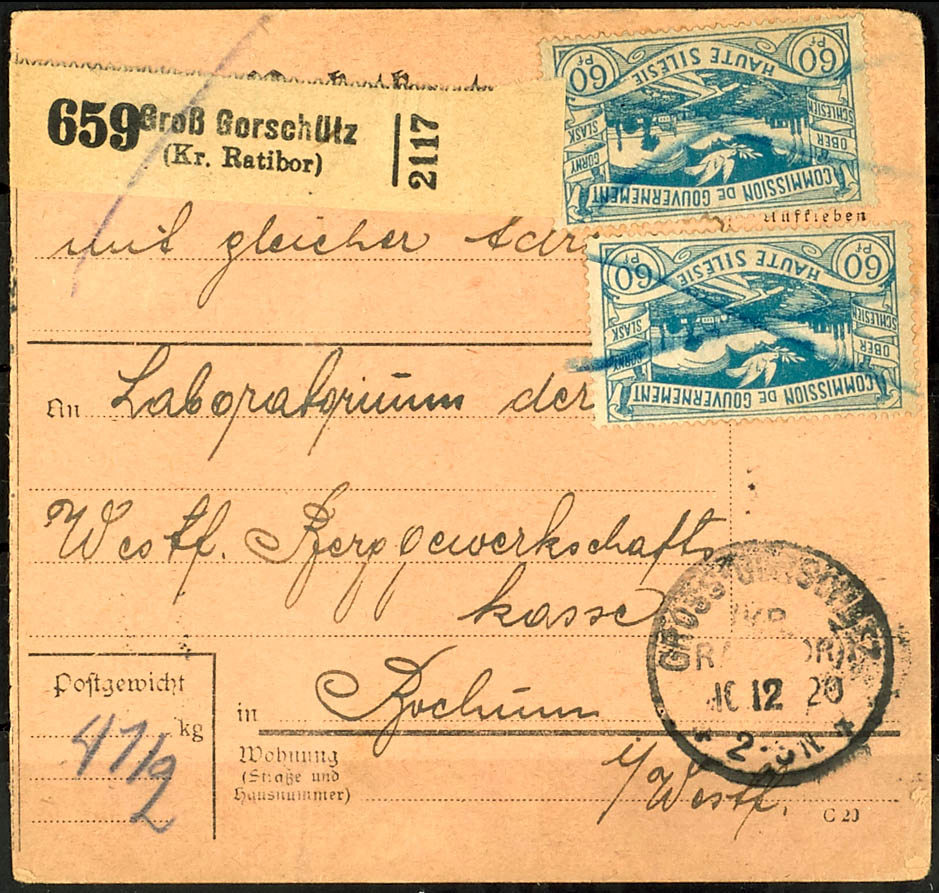 659 Groß Gorschütz
(Kr. Ratibor)
2117
60 Pf HAUTE SILESIE 60 Pf
GORNY ŚLĄSK OBER SCHLESIEN
COMMISSION DE GOUVERNEMENT
Aufkleben
mit gleicher
60 Pf HAUTE SILESIE 60 Pf
GORNY ŚLĄSK OBER SCHLESIEN
COMMISSION DE GOUVERNEMENT
An Laboratorium der
Westf. Berggewerkschafts
kasse
GROSS GORSCHÜTZ
12 20
Postgewicht
4 1/2 kg
in Bochum
i/Westf.
Wohnung
(Straße und
Hausnummer)
C 20